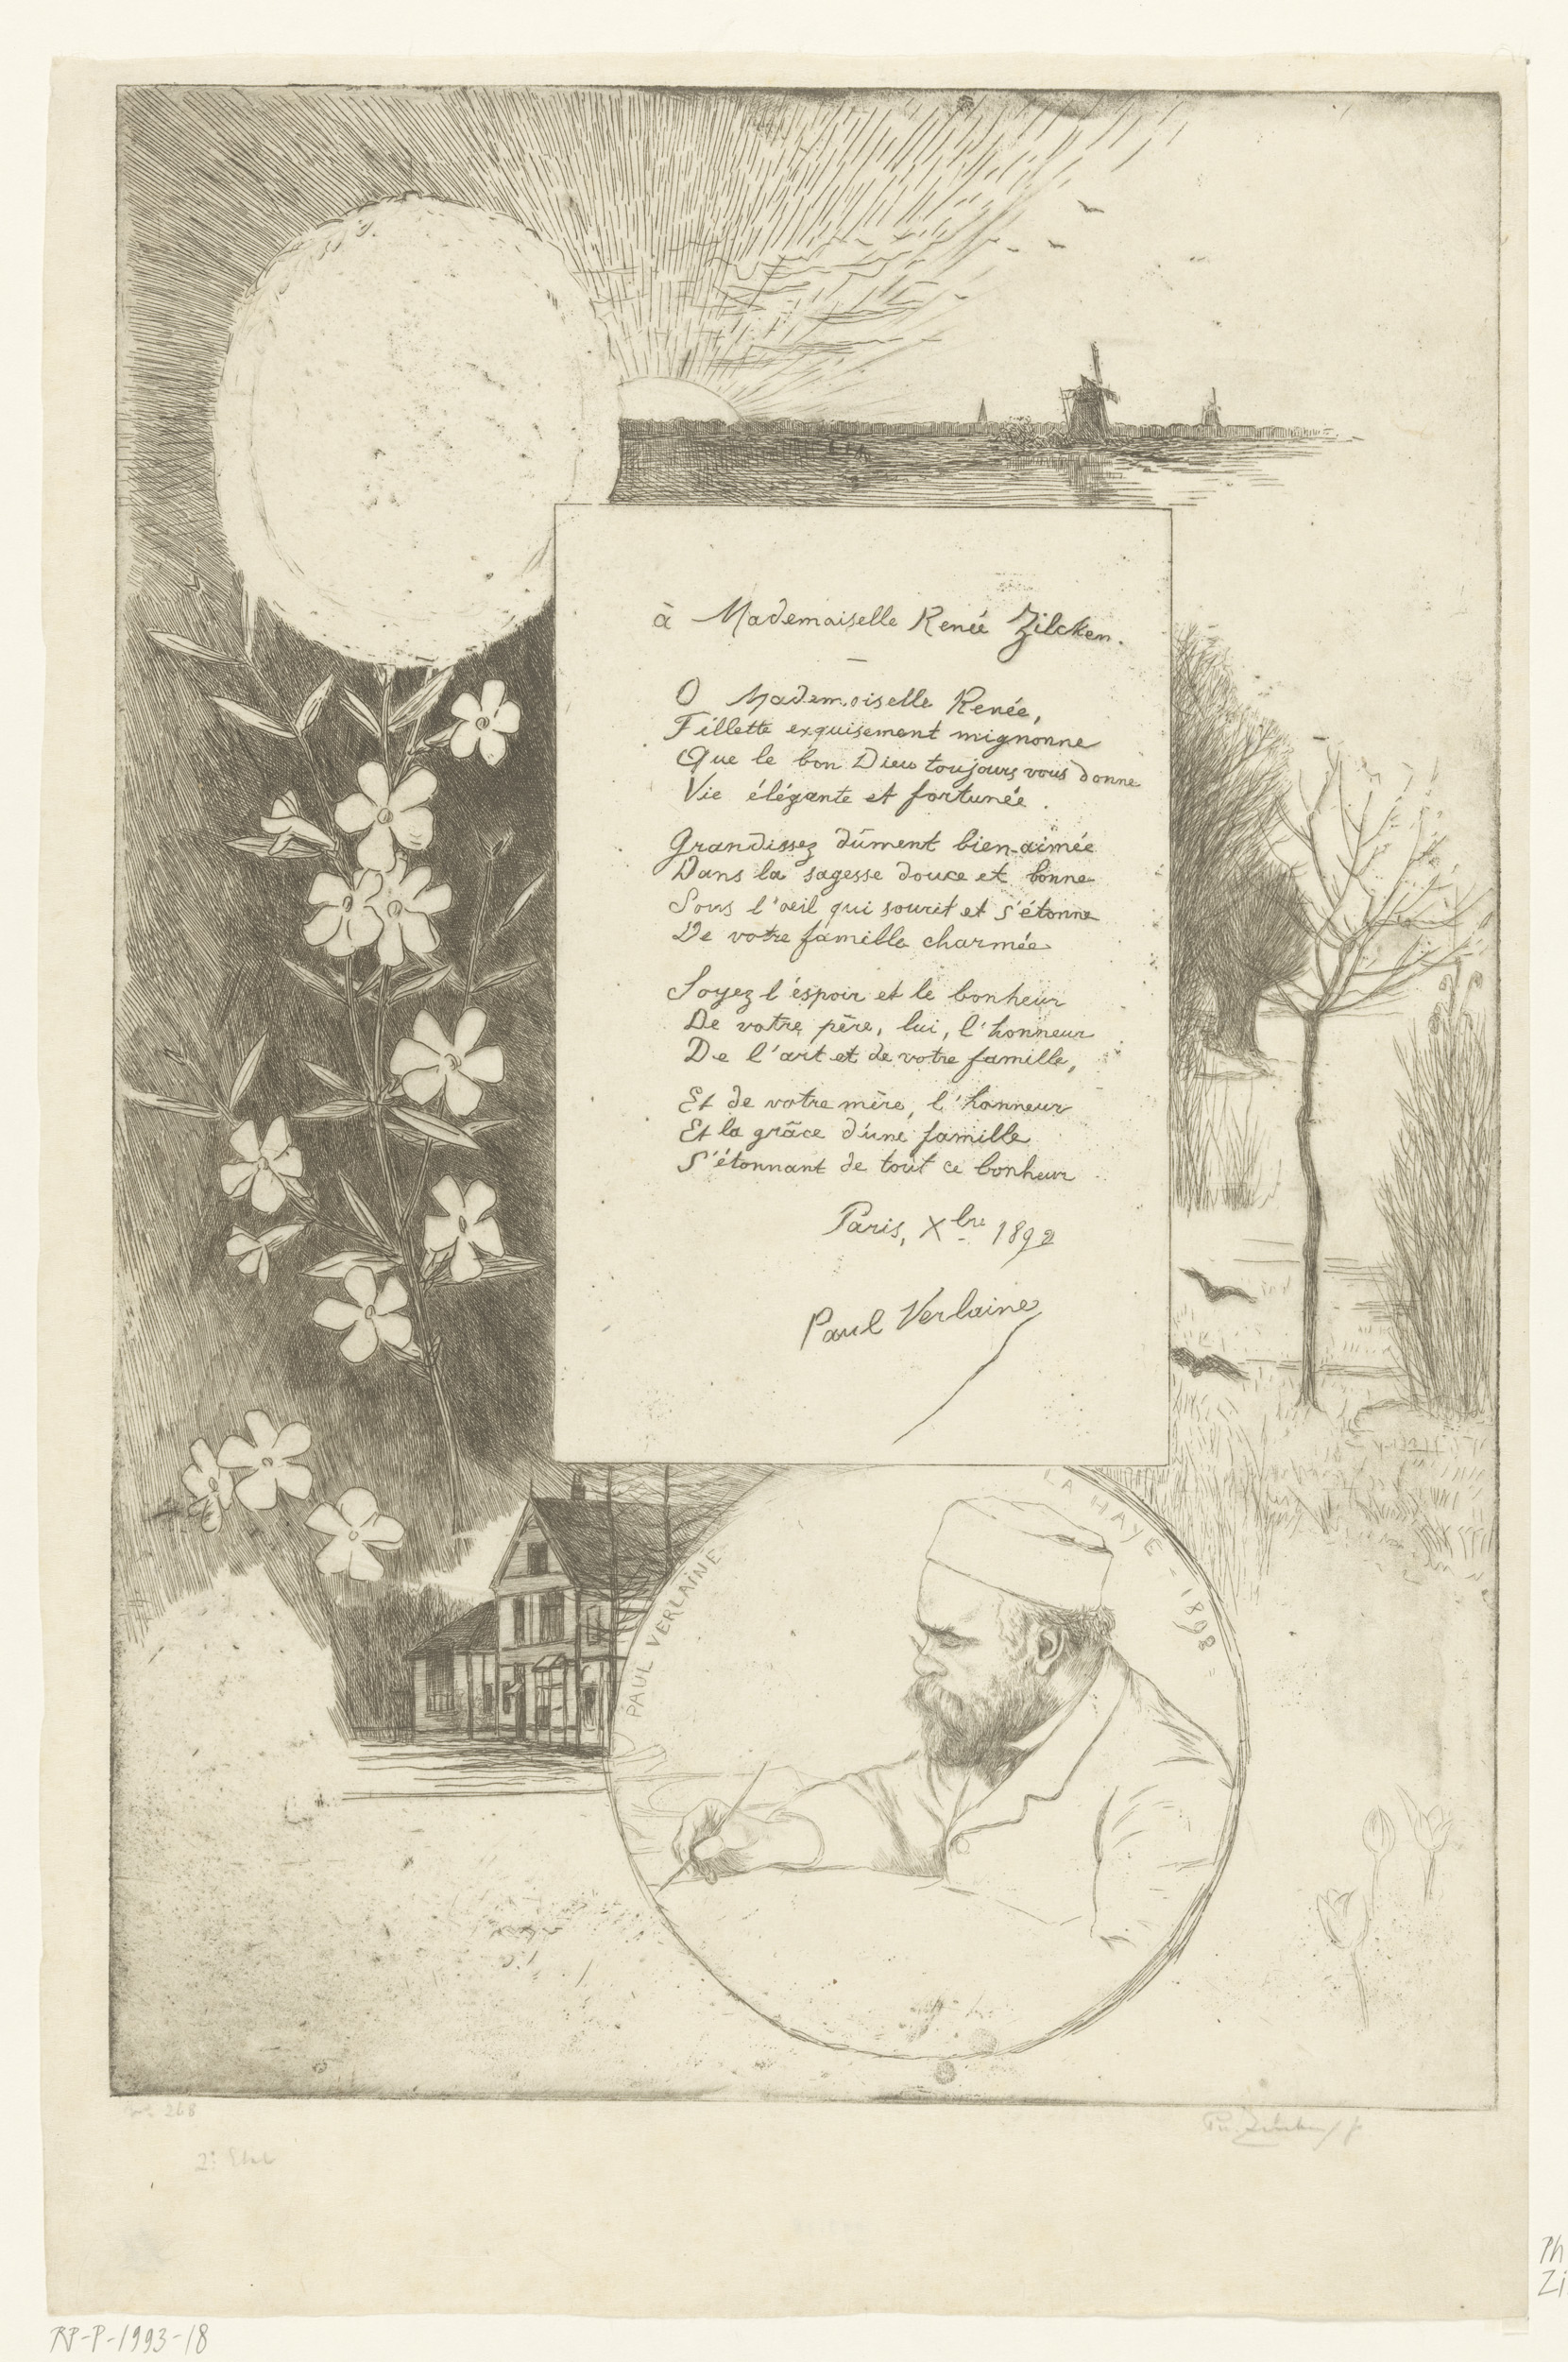 à Mademaiselle Renée Zilcken.
O Mademoiselle Renée,
Fillette exquisement mignonne
Que le bon Dieu toujours vous donne
Vie élégante et fortunée.
Grandissez dûment bien-aimée
Dans la sagesse douce et bonne
Sous l'œil qui sourit et s'étonne
De votre famille charmée
Soyez l'espoir et le bonheur
De votre père, lui, l'honneur
De l'art et de votre famille,
Et de votre mère, l'honneur
Et la grâce d'une famille
S'étonnant de tout ce bonheur
Paris, Xbre 1892
Paul Verlaine
PAUL VERLAINE
LA HAYE - 1892
268
2e Etat
Ph. Zilcken
RP-P-1993-18
Ph
Zi